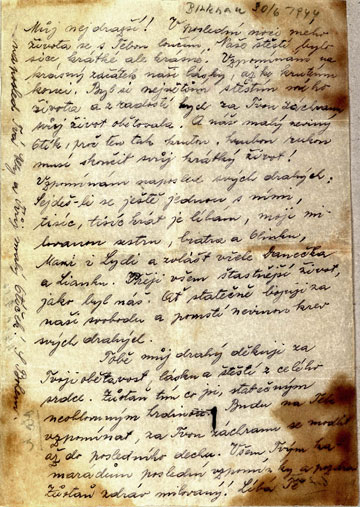 Birkenau 30/6 1944
Můj nejdražší! V poslední noci mého
života se s Tebou loučím. Naše štěstí bylo
sice krátké ale krásné. Vzpomínám na
krásný začátek naší lásky, až ku krutému
konci. Byl si největším štěstím mého
života a s radostí bych za Tvou záchranu
svůj život obětovala. A náš malý nevinný
Otík, proč ten tak krutou, hrubou rukou
musí skončit svůj krátký život!
Vzpomínám naposled svých drahých:
Sejdeš-li se ještě jednou s nimi,
tisíc, tisíckrát je líbám, moje mi
lovanou sestru, bratra a Olinku,
Mani i Lydi a zvlášť vřele Janečka
a Lianku. Přeji všem šťastnější život,
jako byl náš. Ať statečně bojují za
naši svobodu a pomstí nevinou krev
svých drahých.
Tobě můj drahý děkuji za
Tvoji obětavost lásku a štěstí z celého
srdce. Zůstaň tím co psi, statečným
neoblomným hrdinou. Budu na Tebe
vzpomínat, za Tvou záchranu se modlit
až do posledního dechu. Všem Tvým ka
marádům poslední vzpomínky a
Zůstaň zdráv milovaný! Líbá Tě
naposled Tvá a Tvůj malý Otíček!